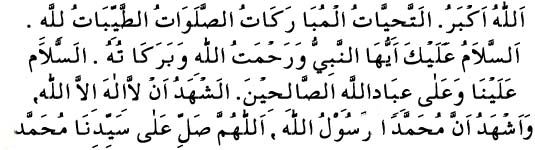 اَللهُ اَكْبَرُ. اَلتَّحِيَّاتُ الْمُبَا رَكَاتُ الصَّلَوَاتُ الطَّيِّبَاتُ لله .
اَلسَّلَامُ عَلَيْكَ اَيُّهَا النَّبِيُّ وَرَحْمَتُ اللهِ وَبَرَكَا تُهُ . اَلسَّلَام
عَلَيْنَا وَعَلٰى عِبَاداللهِ الصَّالِحِيْنَ. اَلشْهَدُ اَنْ لَااِلٰهَ اِلاَّ اللهِ,
وَاَشْهَدُ اَنَّ مُحَمَّدً ا رَسُوْلُ اللهِ , اَللهُمَّ صَلِّ عَلٰى سَيِّدِنَا مُحَمَّد